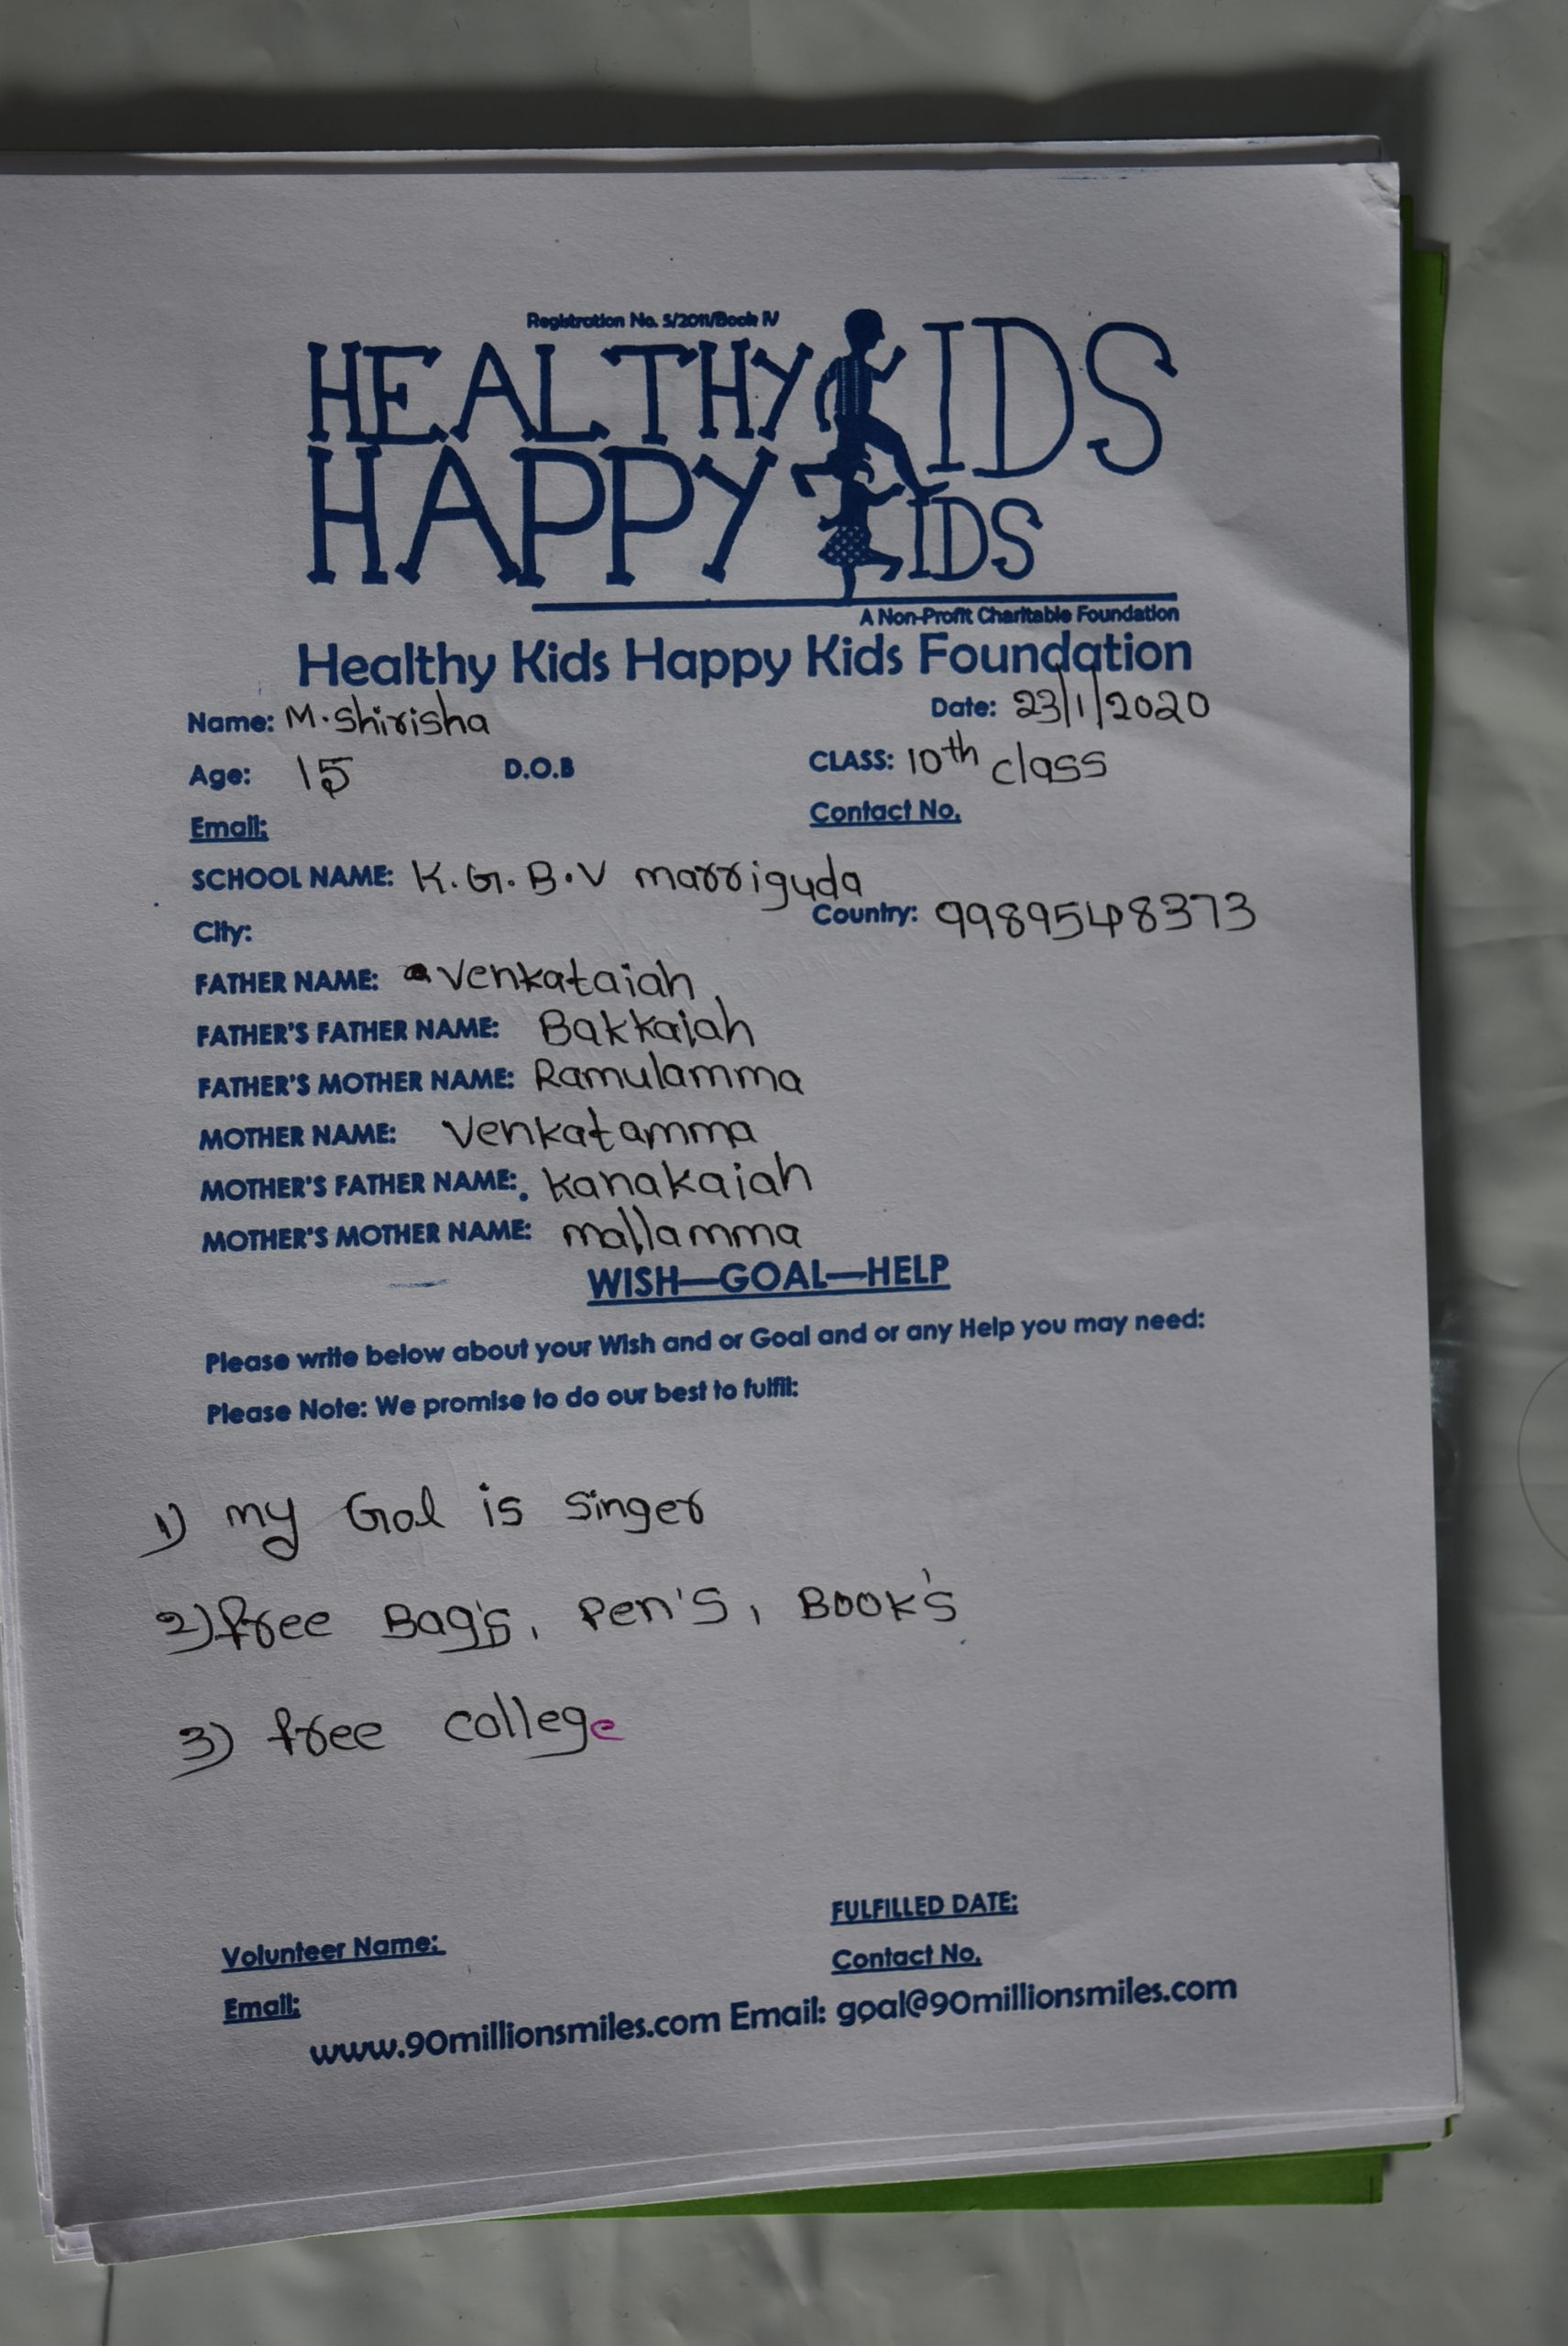 Registration No. 5/2011/Book IV
HEALTHY KIDS
HAPPY KIDS
A Non-Profit Charitable Foundation
Healthy Kids Happy Kids Foundation
Name: M. Shirisha Date: 23/1/2020
Age: 15 D.O.B CLASS: 10th class
Email: Contact No.
SCHOOL NAME: K.G.B.V marriguda
City: Country: 9989548373
FATHER NAME: Venkataiah
FATHER'S FATHER NAME: Bakkaiah
FATHER'S MOTHER NAME: Ramulamma
MOTHER NAME: Venkatamma
MOTHER'S FATHER NAME: kanakaiah
MOTHER'S MOTHER NAME: mallamma
WISH—GOAL—HELP
Please write below about your Wish and or Goal and or any Help you may need:
Please Note: We promise to do our best to fulfil:
1) my Gol is singer
2) free Bag's, Pen's, Book's
3) free college
FULFILLED DATE:
Volunteer Name: Contact No.
Email:
www.90millionsmiles.com Email: goal@90millionsmiles.com